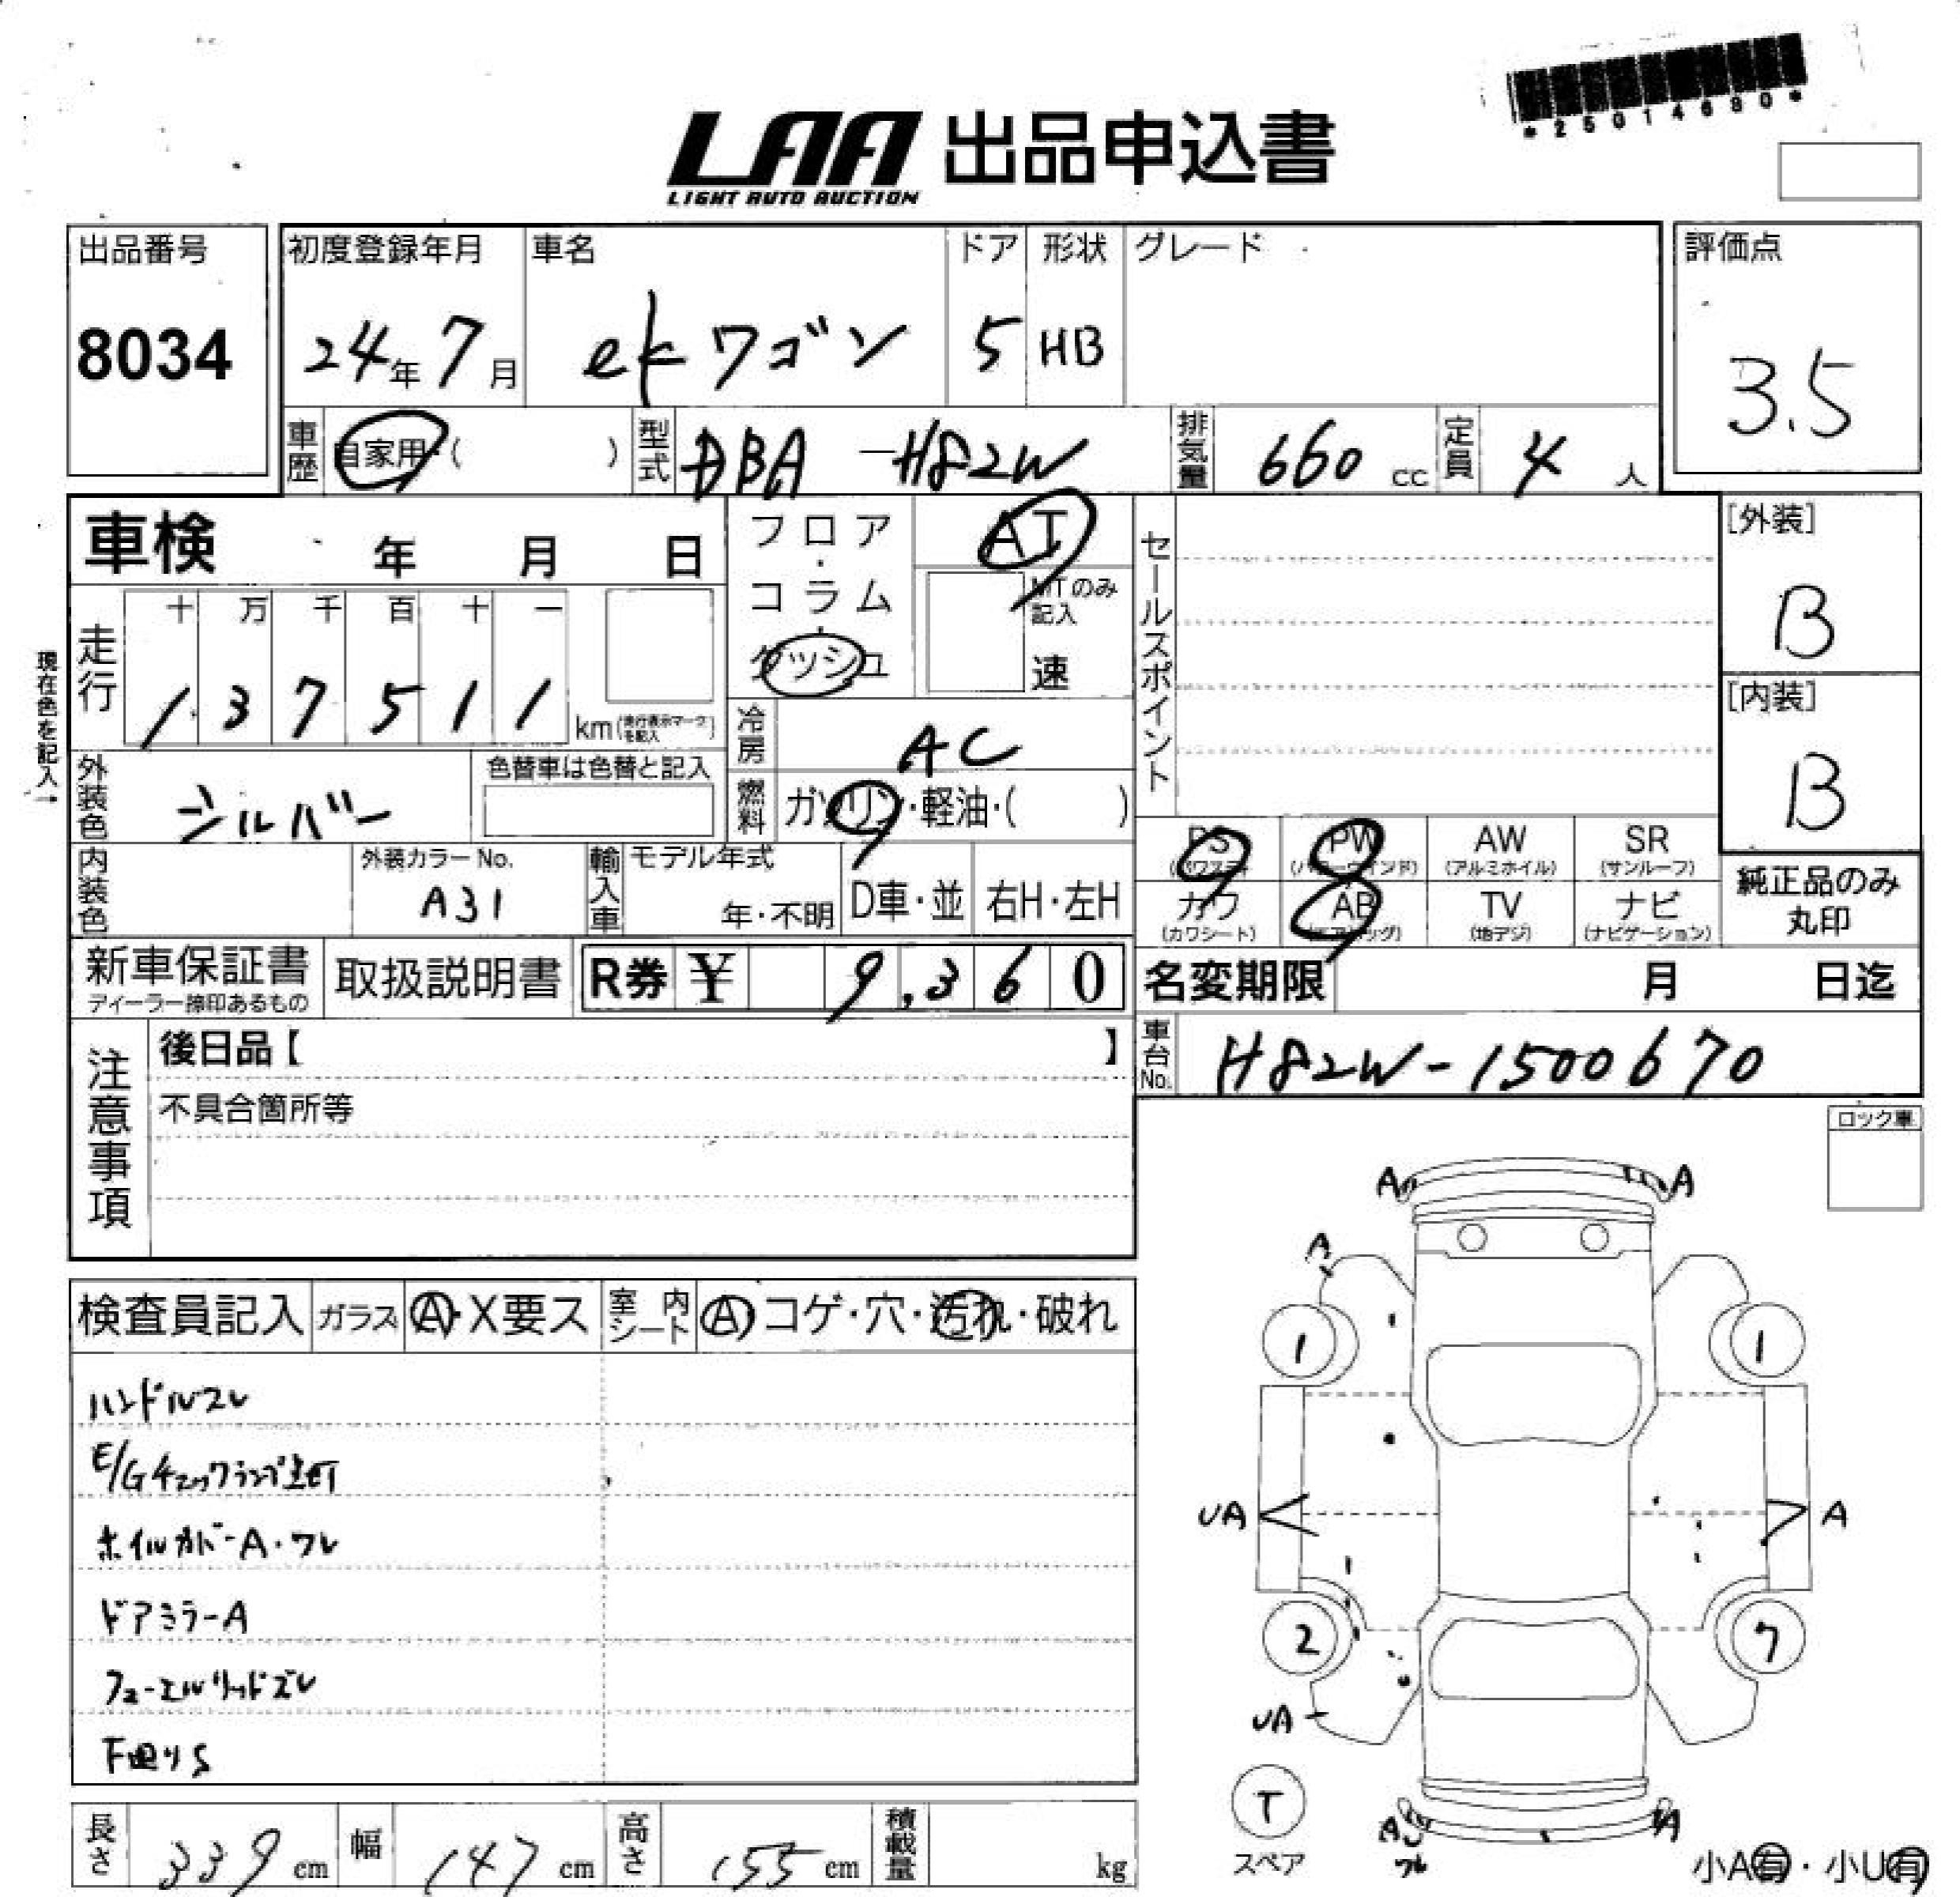 *25014680*
LAA 出品申込書
LIGHT AUTO AUCTION
出品番号 初度登録年月 車名 ドア 形状 グレード 評価点
8034 24年 7月 ekワゴン 5 HB 3.5
車歴 自家用・( ) 型式 DBA-H82W 排気量 660 cc 定員 4 人
車検 年 月 日
フロア・コラム・ダッシュ AT
MTのみ記入 速
セールスポイント
[外装] B
[内装] B
現在色を記入→
走行 十 万 千 百 十 一
1 3 7 5 1 1 km (走行表示マークを記入)
冷房 AC
外装色 シルバー 色替車は色替と記入
燃料 ガソリン・軽油・( )
PS (パワステ) PW (パワーウインド) AW (アルミホイル) SR (サンルーフ)
カワ (カワシート) AB (エアバッグ) TV (地デジ) ナビ (ナビゲーション)
純正品のみ丸印
内装色 外装カラーNo. A31 輸入車 モデル年式 年・不明 D車・並 右H・左H
新車保証書 ディーラー捺印あるもの 取扱説明書 R券 ¥ 9,360
名変期限 月 日迄
車台No. H82W-1500670
注意事項
後日品【 】
不具合箇所等
ロック車
検査員記入 ガラス A・X要ス 室内シート A コゲ・穴・汚れ・破れ
ハンドルスレ
E/Gチェックランプ点灯
ホイルカバーA・ワレ
ドアミラーA
フューエルリッドズレ
下廻りS
A A
A
1 1
UA A
2 7
UA
T
スペア
A ワレ A
小A有・小U有
長さ 339 cm 幅 147 cm 高さ 155 cm 積載量 kg